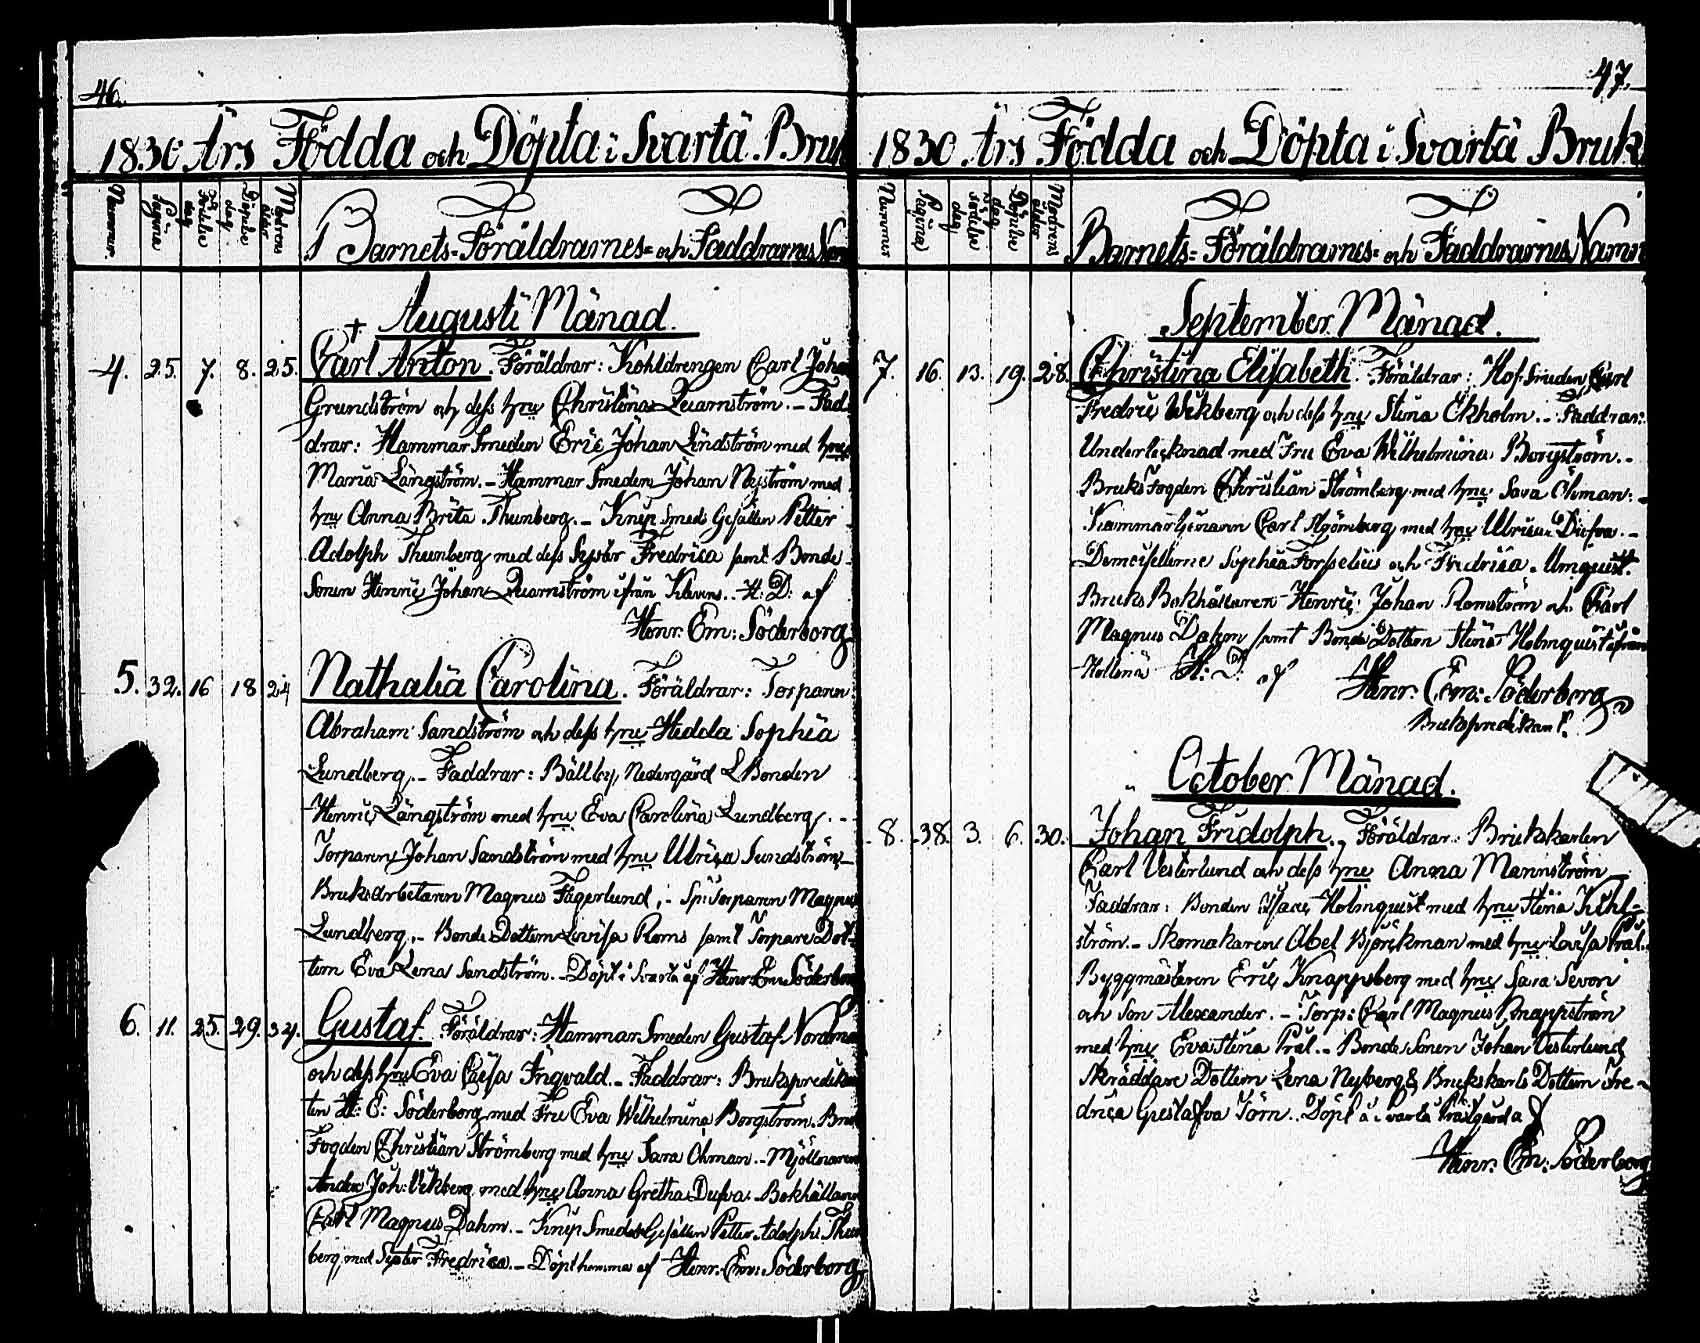 46.
1830 Års Födda och Döpta i Svartå Bruk
Nummer Pagina Födelse dag Döpelse dag Modrens ålder
Barnets- Föräldrarnes- och Faddrarnes
Augusti Månad.
4. 25. 7. 8. 25. Carl Anton. Föräldrar: Kohldrengen Carl Johan
Grundström och dess hru Christina Quarnström. – Fad
drar: Hammar Smeden Eric Johan Lindström med hru
Maria Långström. – Hammar Smeden Johan Nyström med
hru Anna Brita Thunberg. – Knip Smeds Gesällen Petter
Adolph Thunberg med dess Syster Fredrica samt Bonde
Sonen Henric Johan Quarnström ifrån H: D: af
Henr. Em: Söderborg
5. 32. 16 18 24 Nathalia Carolina. Föräldrar: Torparen
Abraham Sandström och dess hru Hedda Sophia
Lundberg. – Faddrar: Bällby Nedergård Bonden
Henric Långström med hru Eva Carolina Lundberg. –
Torparen Johan Sandström med hru Ulrica Sundström –
Bruksarbetaren Magnus Fagerlund. – Sp: Torparen Magnus
Lundberg. – Bonde Dottern Lovisa Roms samt Torpare Dot-
tern Eva Lena Sandström. – Döpt i Svartå af Henr. Em: Söderborg
6. 11. 25. 29. 34. Gustaf. Föräldrar: Hammar Smeden Gustaf
och dess hru Eva Cajsa Ingvald. – Faddrar: Brukspredikan
ten H: E: Söderborg med Fru Eva Wilhelmina Borgström.
Fogden Christian Strömberg med hru Sara Öhman. – Mjölnaren
Anders Joh: Vikberg med hru Anna Gretha Dufva. Bokhållaren
Carl Magnus Dahm. – Knip Smeds Gesällen Petter Adolph Thun
berg med Syster Fredrica. – Döpt hemma af Henr. Em: Söderborg
47.
1830 Års Födda och Döpta i Svartå Bruk
Nummer Pagina Födelse dag Döpelse dag Modrens ålder
Barnets- Föräldrarnes- och Faddrarnes Namn
September Månad.
7. 16. 13. 19. 28. Christina Elisabeth. Föräldrar: Hof-Smeden Carl
Fredric Wikberg och dess hru Stina Ekholm. – Faddrar:
Undertecknad med Fru Eva Wilhelmina Borgström. –
Bruks Fogden Christian Strömberg med hru Sara Öhman: –
Carl Sjömberg med hru Ulrica Dufva. –
Demoisellerne Sophia Forselius och Fredrica Umquist.
Bruks Bokhållaren Henric Johan Romström och Carl
Magnus Dahm samt Bonde Dottern Stina Holmquist ifrån
H: D: af Henr. Em: Söderborg
Brukspredikant.
October Månad.
8. 38. 3. 6. 30. Johan Fridolph. Föräldrar: Brukskarlen
Carl Vesterlund och dess hru Anna Mannström
Faddrar: Bonden Isaac Holmquist med hru Stina Kihl-
ström. – Skomakaren Abel Björkman med hru Lovisa Prål.
Byggmästeren Eric Knappsberg med hru Sara Sevon
och Son Alexander. – Torp: Carl Magnus Knappström
med hru Eva Stina Prål. – Bonde Sonen Johan Vesterlund
Skräddare Dottern Lena Nyberg & Brukskarls Dottern Fre-
drica Gustafva Törn. Döpt å Svartå Prästgård af
Henr. Em: Söderborg